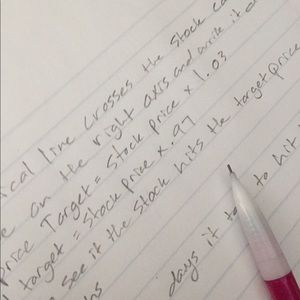 ical line crosses the stock ca
e on the right axis and write it do
price Target = Stock price x 1.03
target = stock price x .97
see if the stock hits the target price
days it to to hit